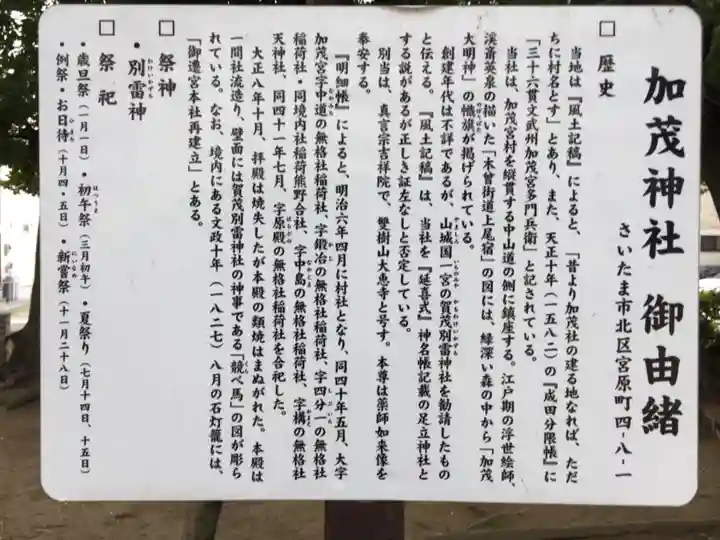 加茂神社 御由緒
さいたま市北区宮原町四-八-一
□ 歴史
当地は『風土記稿』によると、「昔より加茂社の建る地なれば、ただ
ちに村名とす」とあり、また、天正十年（一五八二）の『成田分限帳』に
「三十六貫文武州加茂宮多門兵衛」と記されている。
当社は、加茂宮村を縦貫する中山道の側に鎮座する。江戸期の浮世絵師、
渓斎英泉の描いた「木曽街道上尾宿」の図には、緑深い森の中から「加茂
大明神」の幟旗が掲げられている。
創建年代は不詳であるが、山城国一宮の賀茂別雷神社を勧請したもの
と伝える。『風土記稿』は、当社を『延喜式』神名帳記載の足立神社と
する説があるが正しき証左なしと否定している。
別当は、真言宗吉祥院で、雙樹山大恵寺と号す。本尊は薬師如来像を
奉安する。
『明細帳』によると、明治六年四月に村社となり、同四十年五月、大字
加茂宮字中道の無格社稲荷社、字鍛冶の無格社稲荷社、字四分一の無格社
稲荷社・同境内社稲荷熊野合社、字中島の無格社稲荷社、字構の無格社
天神社、同四十一年七月、字原殿の無格社稲荷社を合祀した。
大正八年十月、拝殿は焼失したが本殿の類焼はまぬがれた。本殿は
一間社流造り、壁面には賀茂別雷神社の神事である「競べ馬」の図が彫ら
れている。なお、境内にある文政十年（一八二七）八月の石灯籠には、
「御遷宮本社再建立」とある。
□ 祭神
・別雷神
□ 祭祀
・歳旦祭（一月一日）・初午祭（三月初午）・夏祭り（七月十四日、十五日）
・例祭・お日待（十月四・五日）・新嘗祭（十一月二十八日）